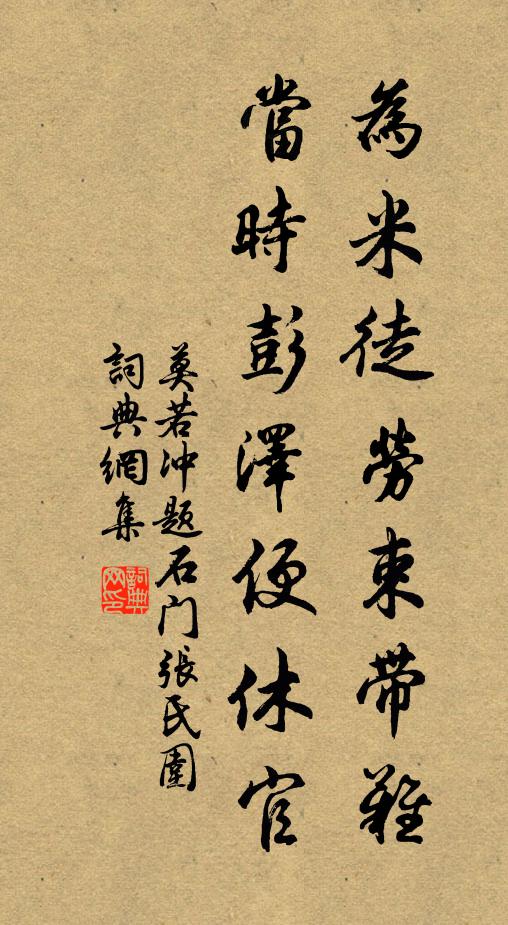 為米徒勞束帶難
當時彭澤便休官
莫若沖題石门張民園
詞典網集
詞典网印